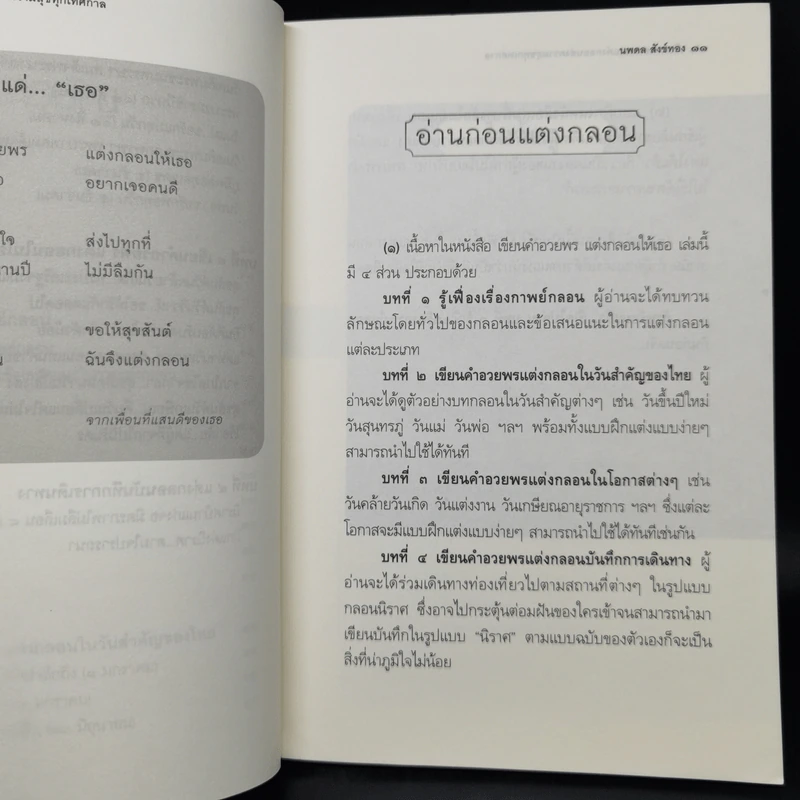 แด่... “เธอ”
แต่งกลอนให้เธอ
อยากเจอคนดี
ส่งไปทุกที่
ไม่มีลืมกัน
ขอให้สุขสันต์
ฉันจึงแต่งกลอน
จากเพื่อนที่แสนดีของเธอ
นพดล สังข์ทอง ๑๑
อ่านก่อนแต่งกลอน
(๑) เนื้อหาในหนังสือ เขียนคำอวยพร แต่งกลอนให้เธอ เล่มนี้
มี ๔ ส่วน ประกอบด้วย
บทที่ ๑ รู้เฟื่องเรื่องกาพย์กลอน ผู้อ่านจะได้ทบทวน
ลักษณะโดยทั่วไปของกลอนและข้อเสนอแนะในการแต่งกลอน
แต่ละประเภท
บทที่ ๒ เขียนคำอวยพรแต่งกลอนในวันสำคัญของไทย ผู้
อ่านจะได้ดูตัวอย่างบทกลอนในวันสำคัญต่างๆ เช่น วันขึ้นปีใหม่
วันสุนทรภู่ วันแม่ วันพ่อ ฯลฯ พร้อมทั้งแบบฝึกแต่งแบบง่ายๆ
สามารถนำไปใช้ได้ทันที
บทที่ ๓ เขียนคำอวยพรแต่งกลอนในโอกาสต่างๆ เช่น
วันคล้ายวันเกิด วันแต่งงาน วันเกษียณอายุราชการ ฯลฯ ซึ่งแต่ละ
โอกาสจะมีแบบฝึกแต่งแบบง่ายๆ สามารถนำไปใช้ได้ทันทีเช่นกัน
บทที่ ๔ เขียนคำอวยพรแต่งกลอนบันทึกการเดินทาง ผู้
อ่านจะได้ร่วมเดินทางท่องเที่ยวไปตามสถานที่ต่างๆ ในรูปแบบ
กลอนนิราศ ซึ่งอาจไปกระตุ้นต่อมฝันของใครเข้าจนสามารถนำมา
เขียนบันทึกในรูปแบบ “นิราศ” ตามแบบฉบับของตัวเองก็จะเป็น
สิ่งที่น่าภูมิใจไม่น้อย